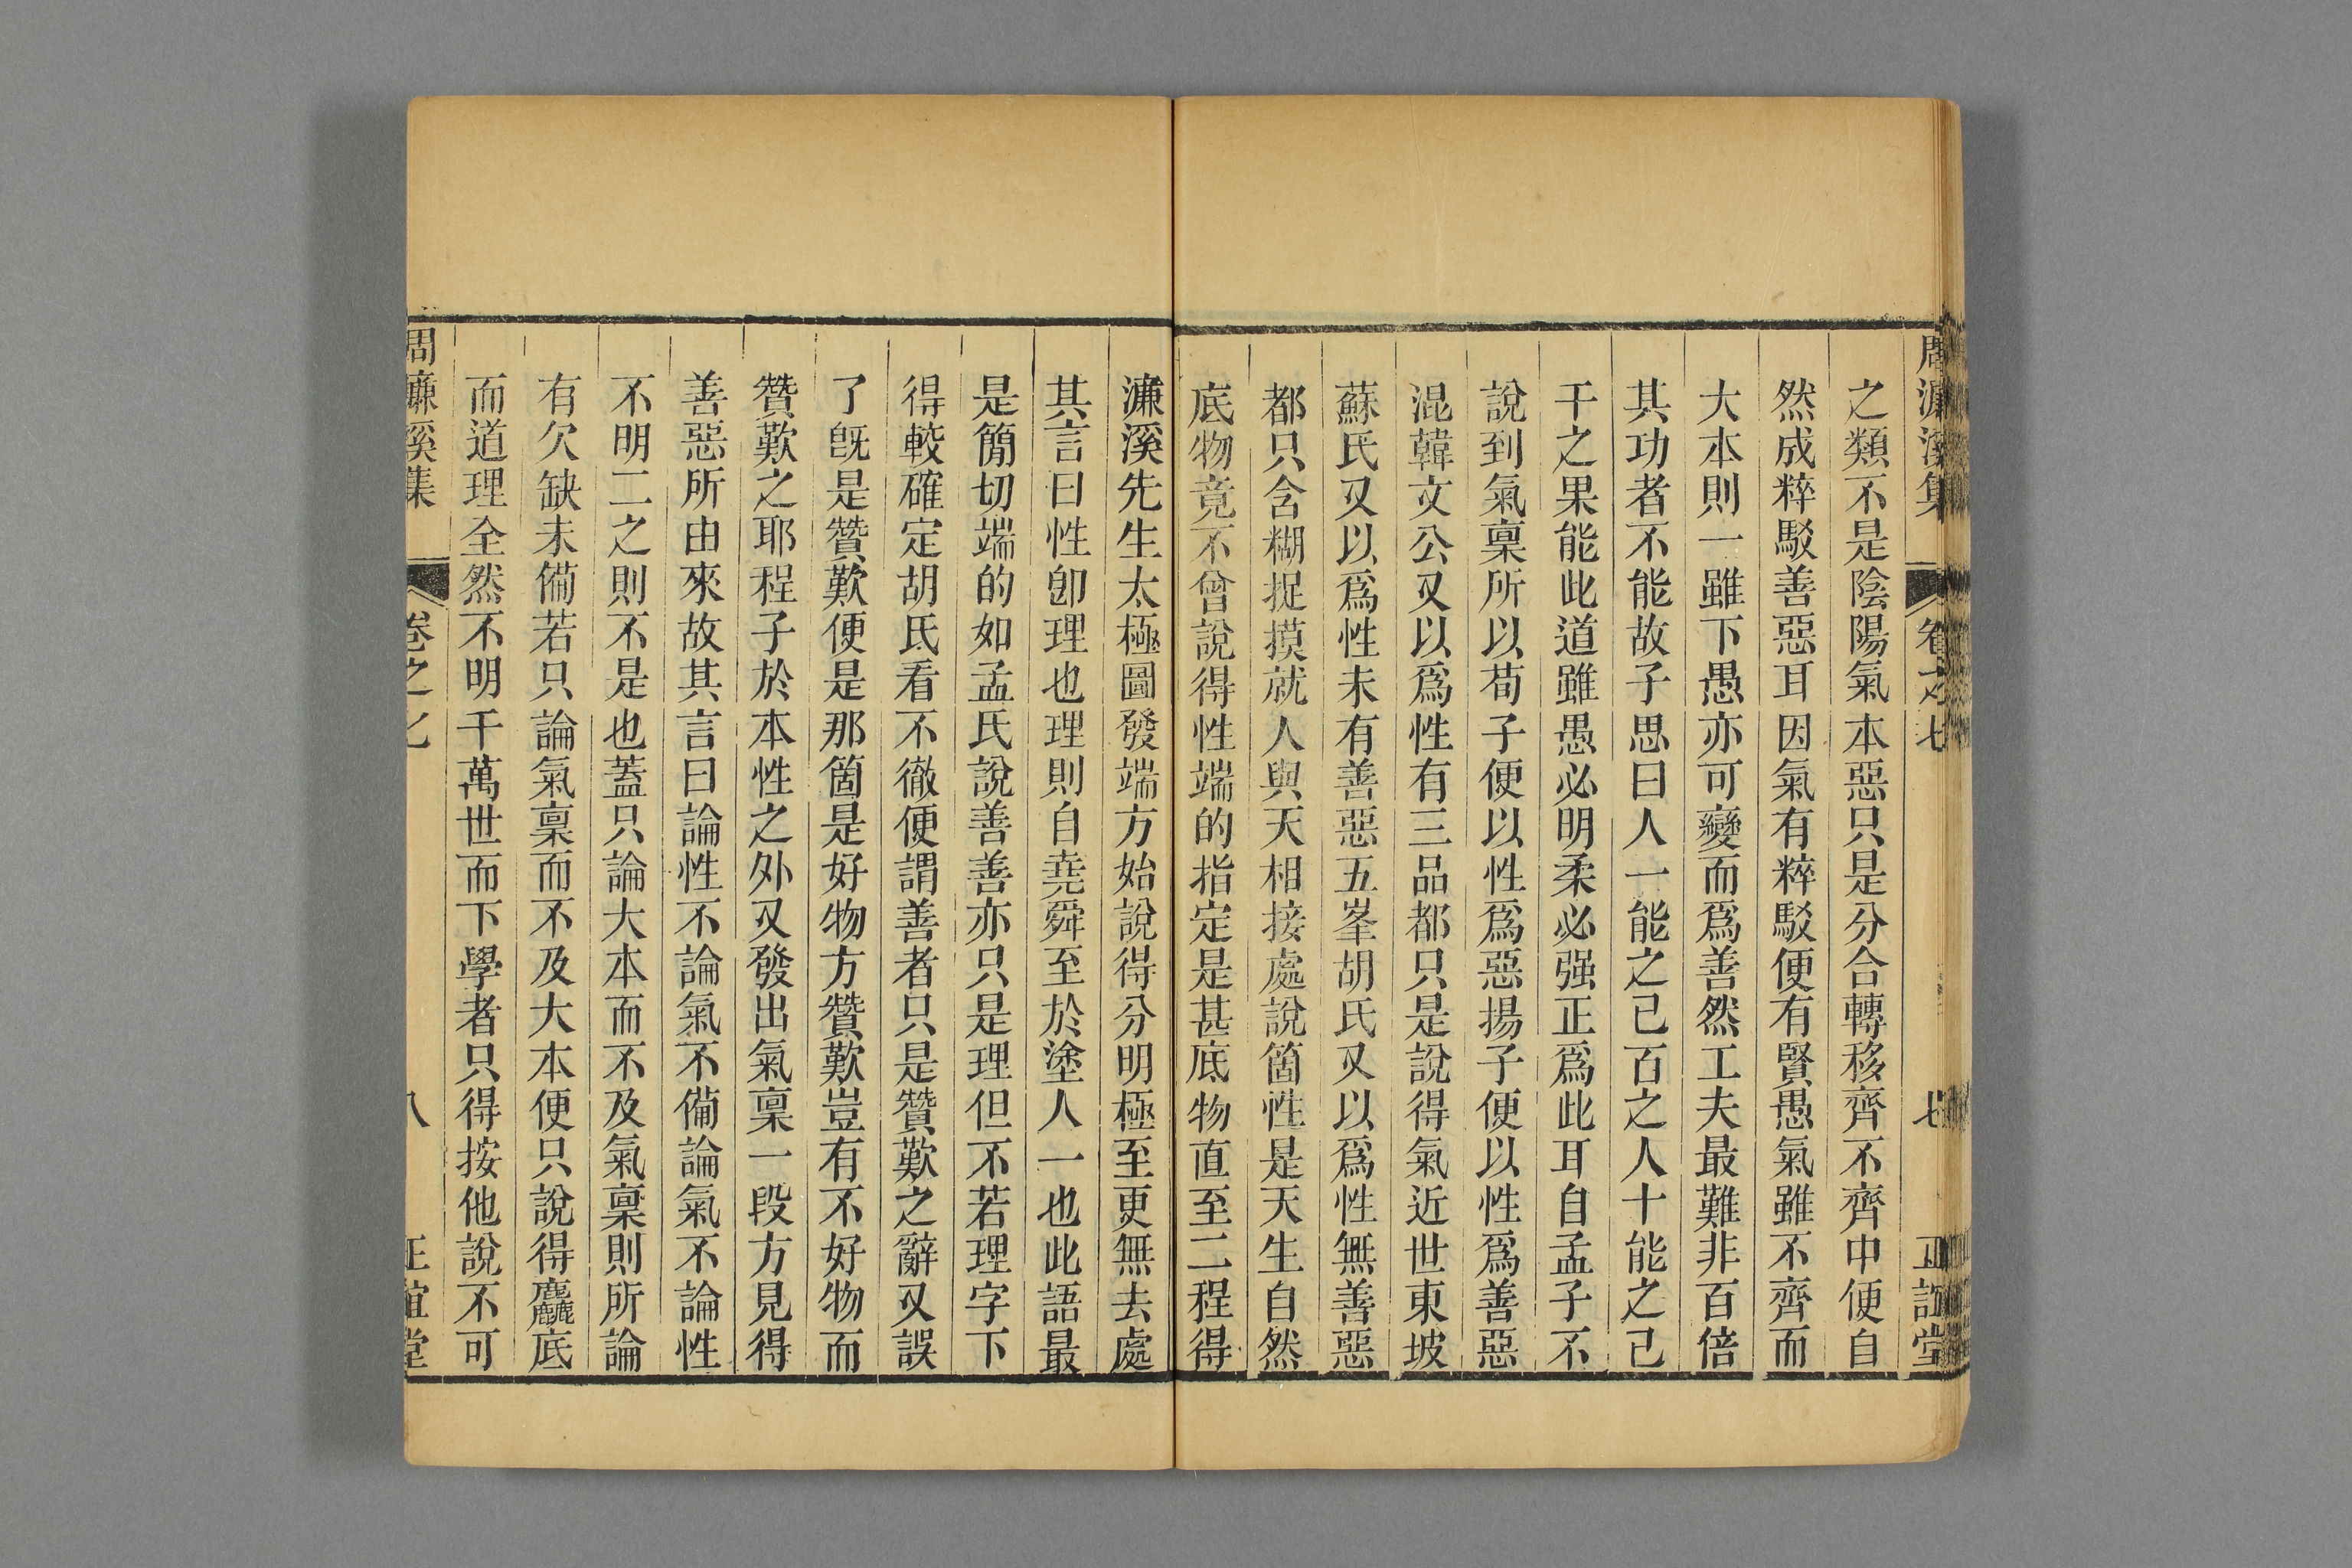 周濂溪集 卷之七 七 正誼堂
之類不是陰陽氣本惡只是分合轉移齊不齊中便自
然成粹駁善惡耳因氣有粹駁便有賢愚氣雖不齊而
大本則一雖下愚亦可變而爲善然工夫最難非百倍
其功者不能故子思曰人一能之己百之人十能之己
千之果能此道雖愚必明柔必强正爲此耳自孟子不
說到氣稟所以荀子便以性爲惡揚子便以性爲善惡
混韓文公又以爲性有三品都只是說得氣近世東坡
蘇氏又以爲性未有善惡五峯胡氏又以爲性無善惡
都只含糊捉摸就人與天相接處說箇性是天生自然
底物竟不曾說得性端的指定是甚底物直至二程得
濂溪先生太極圖發端方始說得分明極至更無去處
其言曰性卽理也理則自堯舜至於塗人一也此語最
是簡切端的如孟氏說善善亦只是理但不若理字下
得較確定胡氏看不徹便謂善者只是贊歎之辭又誤
了旣是贊歎便是那箇是好物方贊歎豈有不好物而
贊歎之耶程子於本性之外又發出氣稟一段方見得
善惡所由來故其言曰論性不論氣不備論氣不論性
不明二之則不是也蓋只論大本而不及氣稟則所論
有欠缺未備若只論氣稟而不及大本便只說得麤底
而道理全然不明千萬世而下學者只得按他說不可
周濂溪集 卷之七 八 正誼堂